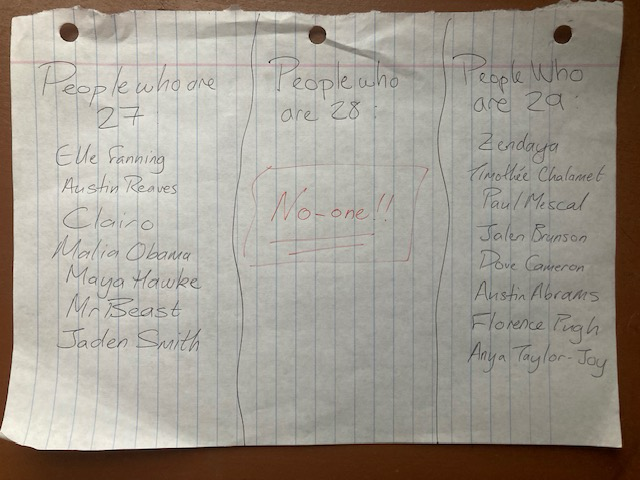 People who are
27
Elle Fanning
Austin Reaves
Clairo
Malia Obama
Maya Hawke
Mr Beast
Jaden Smith
People who
are 28:
No-one!!
People Who
are 29:
Zendaya
Timothée Chalamet
Paul Mescal
Jalen Brunson
Dove Cameron
Austin Abrams
Florence Pugh
Anya Taylor-Joy